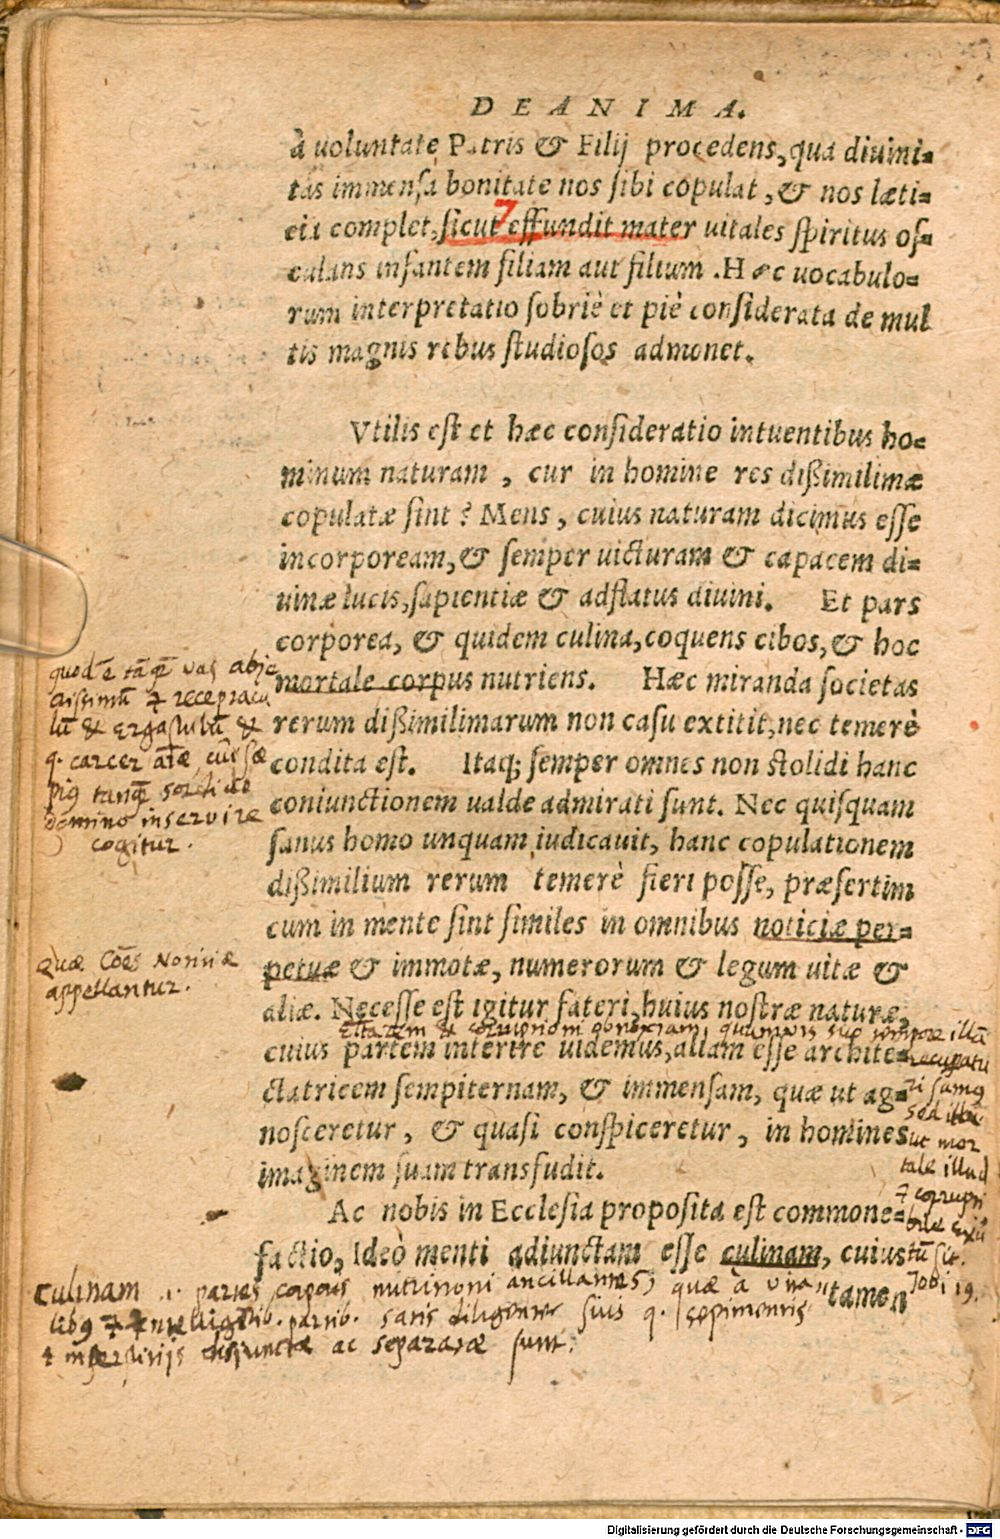 DE ANIMA.
à uoluntate Patris & Filij procedens, qua diuini=
tas immensa bonitate nos sibi copulat, & nos læti=
cia complet, sicut effundit mater uitales spiritus os=
culans infantem filiam aut filium. Hæc uocabulo=
rum interpretatio sobriè et piè considerata de mul
tis magnis rebus studiosos admonet.
Vtilis est et hæc consideratio intuentibus ho=
minum naturam, cur in homine res dißimilimæ
copulatæ sint? Mens, cuius naturam dicimus esse
incorpoream, & semper uicturam & capacem di=
uinæ lucis, sapientiæ & adflatus diuini. Et pars
corporea, & quidem culina, coquens cibos, & hoc
mortale corpus nutriens. Hæc miranda societas
rerum dißimilimarum non casu extitit, nec temerè
condita est. Itaq; semper omnes non stolidi hanc
coniunctionem ualde admirati sunt. Nec quisquam
sanus homo unquam iudicauit, hanc copulationem
dißimilium rerum temerè fieri posse, præsertim
cum in mente sint similes in omnibus noticiæ per=
petuæ & immotæ, numerorum & legum uitæ &
aliæ. Necesse est igitur fateri, huius nostræ naturæ,
cuius partem interire uidemus, aliam esse archite=
ctatricem sempiternam, & immensam, quæ ut ag=
nosceretur, & quasi conspiceretur, in homines
imaginem suam transfudit.
Ac nobis in Ecclesia proposita est commone=
factio, Ideò menti adiunctam esse culinam, cuius
tamen
quod ē tāq̄ vas abje
ctissimū & receptacu
lū & ergastulū &
q. carcer aīæ, cui sæ
pius tanq̄
domino inservire
cogitur.
Quæ Cōēs Notitiæ
appellantur.
illā
sed
ut mor
tale illud
tū sit.
Jobi 19.
culinam .i. partes corporis nutritioni ancillantes, quæ à
satis diligenter suis q. sepimentis
disjunctæ ac separatæ sunt.
Digitalisierung gefördert durch die Deutsche Forschungsgemeinschaft - DFG